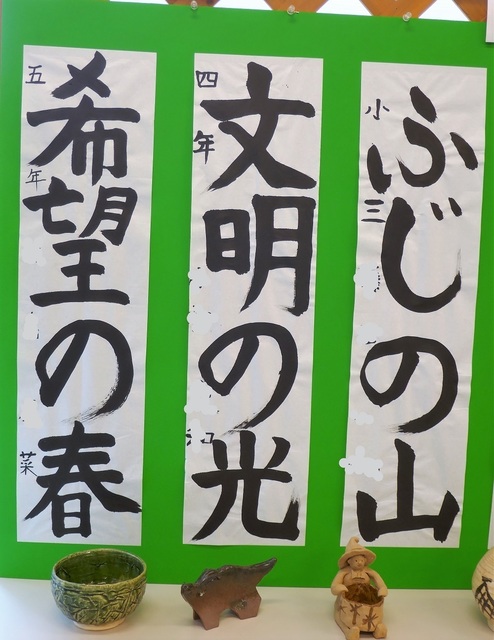 ふじの山
小三
文明の光
四年
希望の春
五年
菜